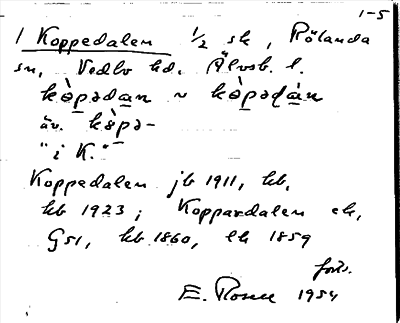 1-5
1 Koppedalen 1/2 sk, Rölanda
sn, Vedbo hd. Älvsb. l.
kòpədan ~ kòpədàn
äv. kòpə-
"i K."
Koppedalen jb 1911, hb,
kb 1923; Koppardalen ek,
GS1, kb 1860, lk 1859
forts.
E. Rosell 1954